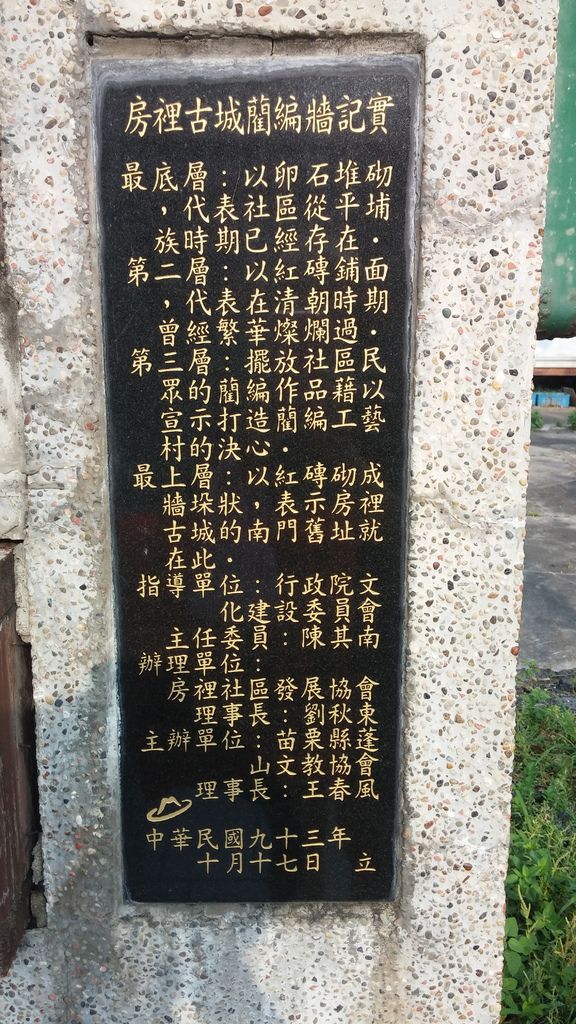 房裡古城藺編牆記實
最底層：以卵石堆砌
，代表社區從平埔
族時期已經存在．
第二層：以紅磚鋪面
，代表在清朝時期
曾經繁華燦爛過．
第三層：擺放社區民
眾的藺編作品藉以
宣示打造藺編工藝
村的決心．
最上層：以紅磚砌成
牆垛狀，表示房裡
古城的南門舊址就
在此．
指導單位：行政院文
化建設委員會
主任委員：陳其南
辦理單位：
房裡社區發展協會
理事長：劉秋東
主辦單位：苗栗縣蓬
山文教協會
理事長：王春風
中華民國九十三年
十月十七日 立